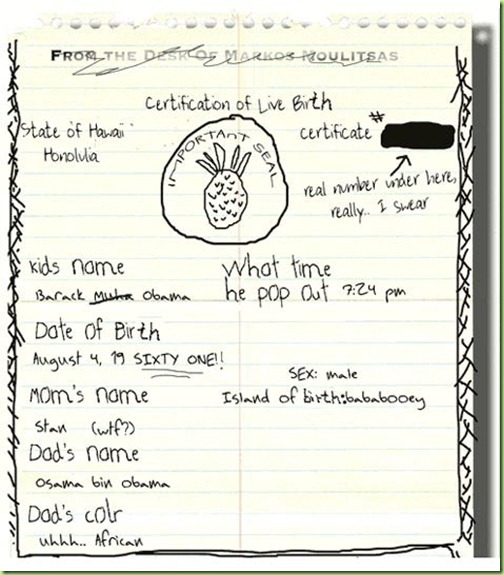 FROM THE DESK OF MARKOS MOULITSAS
Certification of Live Birth
State of Hawaii
Honolulia
IMPORTANT SEAL
certificate #
real number under here,
really.. I swear
kids name
Barack Obama
What time
he pop out 7:24 pm
Date of Birth
August 4, 19 SIXTY ONE!!
SEX: male
Island of birth:bababooey
Mom's name
Stan (wtf?)
Dad's name
Osama bin Obama
Dad's colr
uhhh.. African